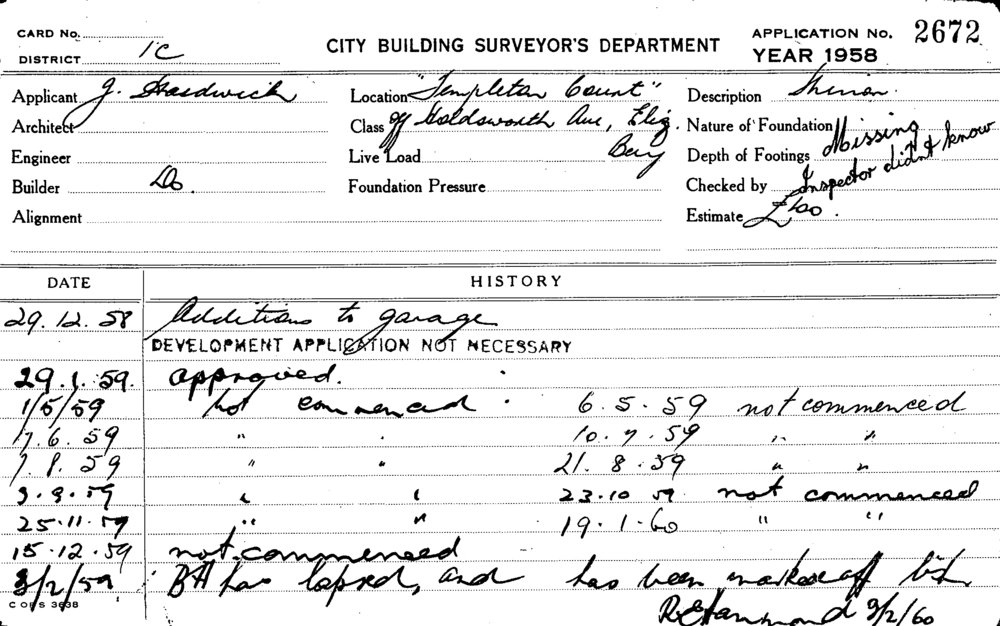 CARD No.
DISTRICT 1C
CITY BUILDING SURVEYOR'S DEPARTMENT
APPLICATION No. 2672
YEAR 1958
Applicant J. Hardwick
Location "Templeton Court"
Description
Architect
Class off Holdsworth Ave, Eliz.
Nature of Foundation Missing
Engineer
Live Load Bay
Depth of Footings
Builder Do.
Foundation Pressure
Checked by Inspector didn't know
Alignment
Estimate £100.
DATE HISTORY
29.12.58 Additions to garage
DEVELOPMENT APPLICATION NOT NECESSARY
29.1.59. approved.
1/5/59 not commenced . 6.5.59 not commenced
17.6.59 " . 10.7.59 " "
7.8.59 " " 21.8.59 " "
3.9.59 " " 23.10.59 not commenced
25.11.59 " " 19.1.60 " "
15.12.59 not commenced
3/2/59 BA has lapsed, and has been marked off
COPS 3638
R Hammond 3/2/60